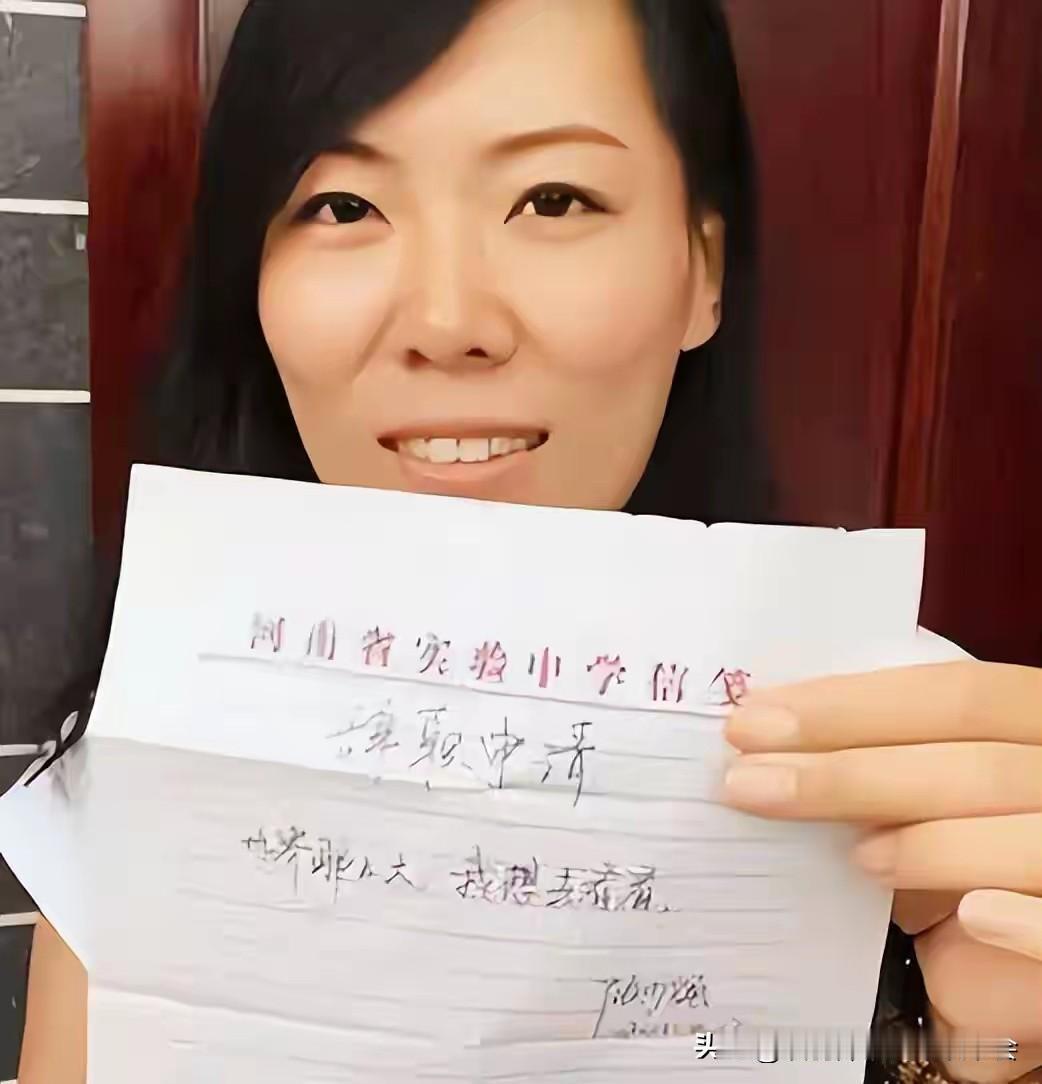 河南省实验中学信笺
辞职申请
世界那么大 我想去看看。
头